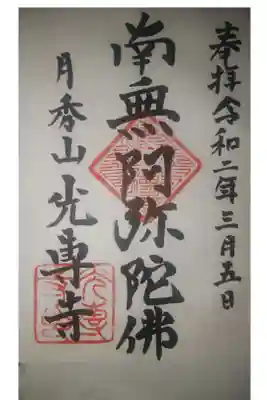 奉拝令和二年三月五日
南無阿弥陀佛
月秀山光専寺